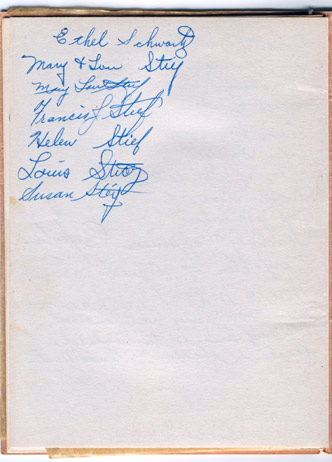 Ethel Schwartz
Mary & Lou Stief
Mary Lou Stief
Francis J Stief
Helen Stief
Louis Stief
Susan Stief